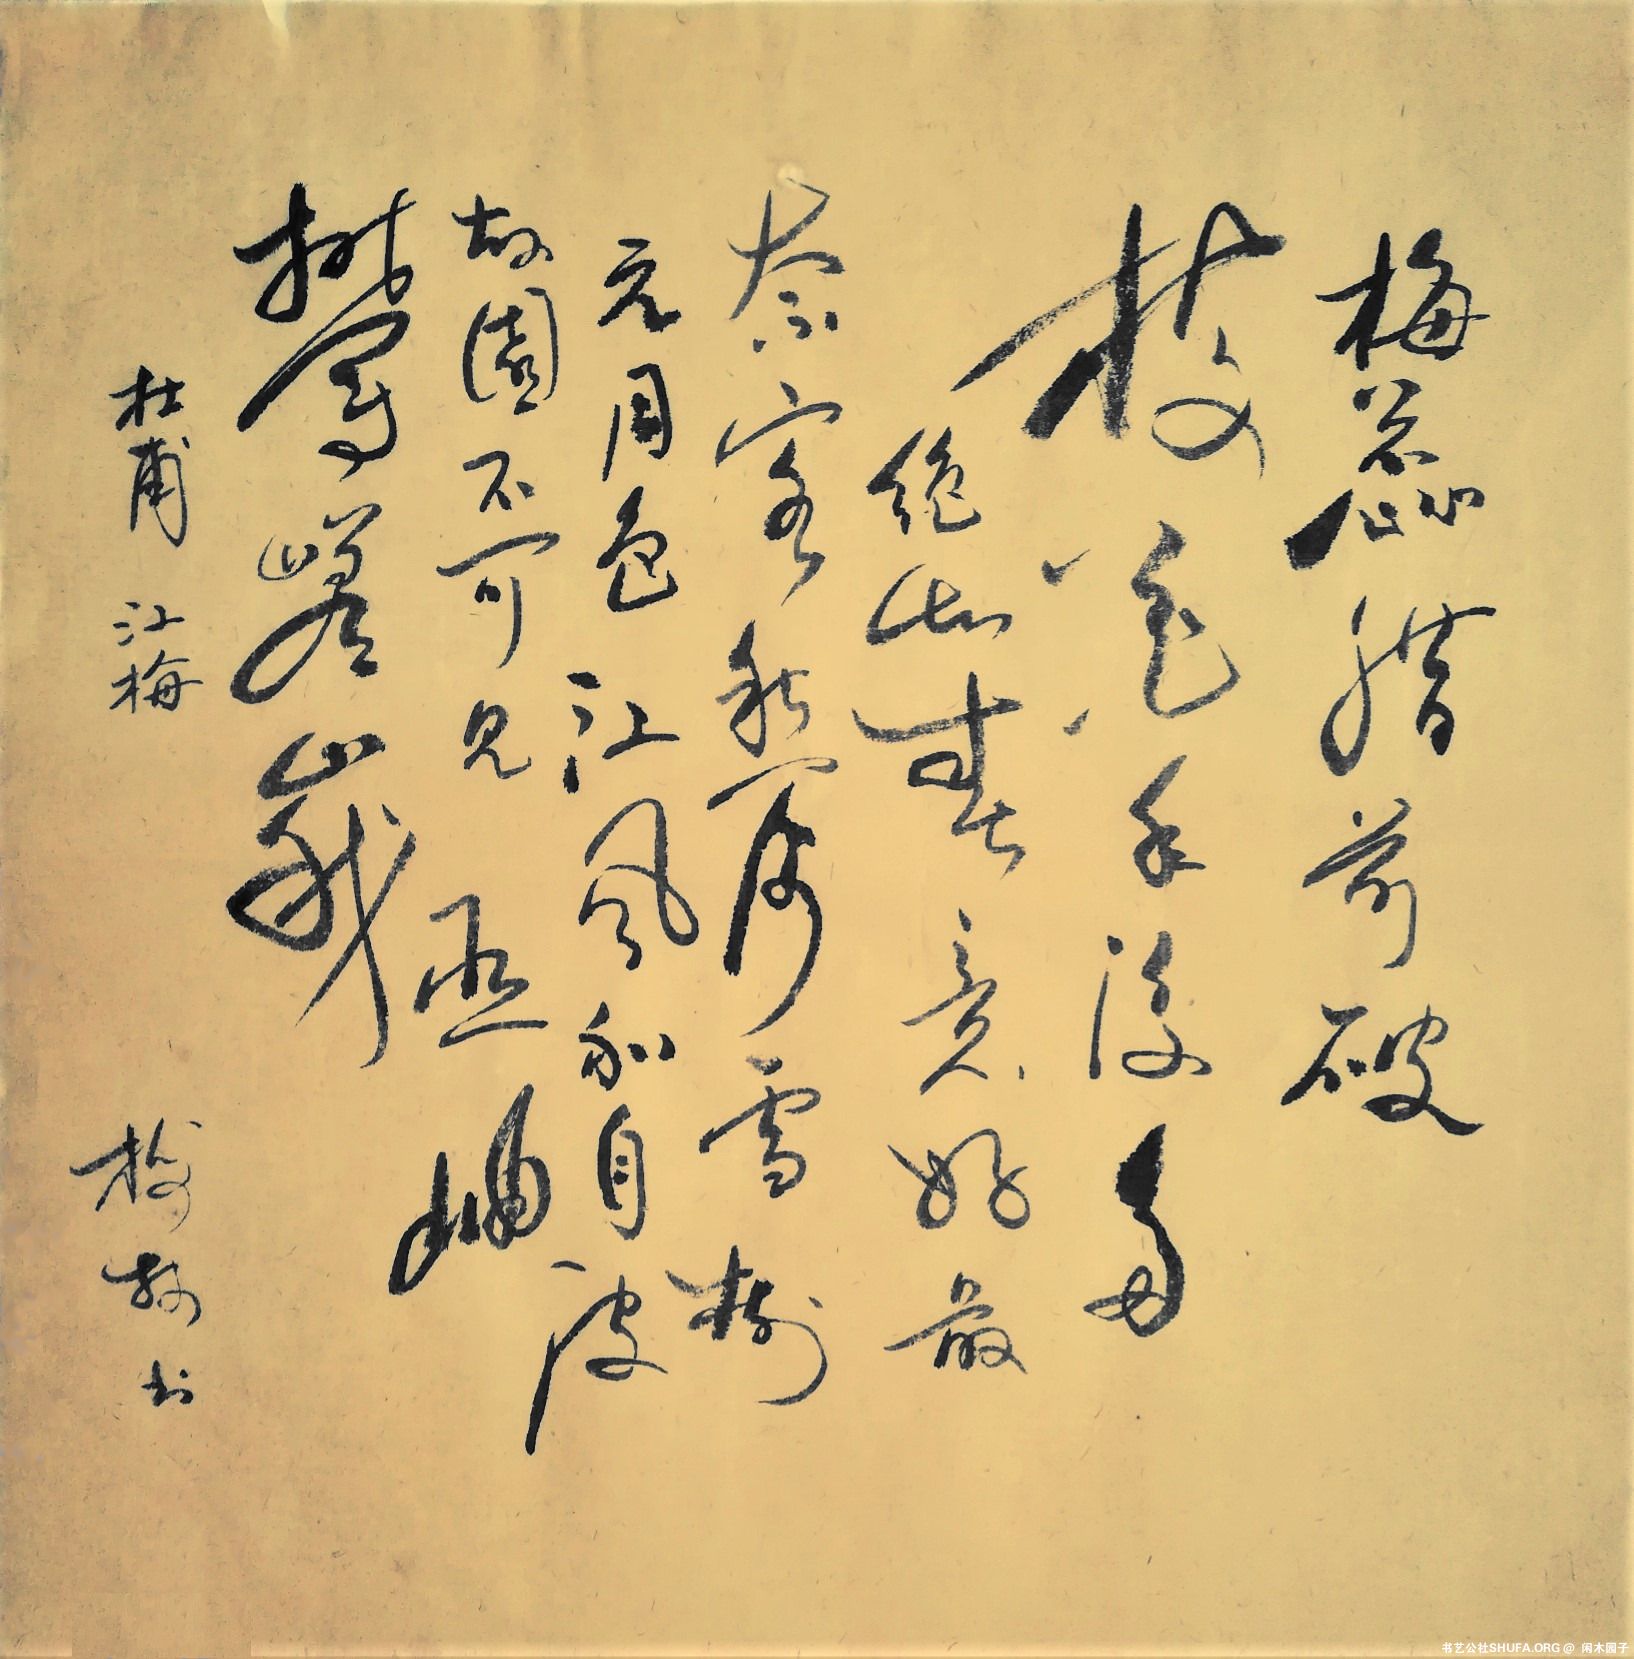 梅蕊腊前破
梅花年後多
絶知春意好最
奈客愁何雪樹
元同色江风亦自波
故園不可見巫岫
鬱嵯峨
杜甫 江梅
书
书艺公社SHUFA.ORG @ 闲木园子